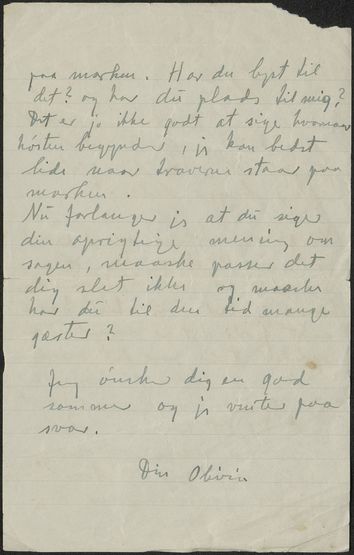 paa marken. Har du lyst til
det? og har du plads til mig?
Det er jo ikke godt at sige hvornaar
hösten begynder, jeg kan bedst
lide naar traverne staar paa
marken.
Nu forlanger jeg at du siger
din oprigtige mening om
sagen, maaske passer det
dig slet ikke og maaske
har du til den tid mange
gæster?
Jeg önsker dig en god
sommer og jeg venter paa
svar.
Din Olivia